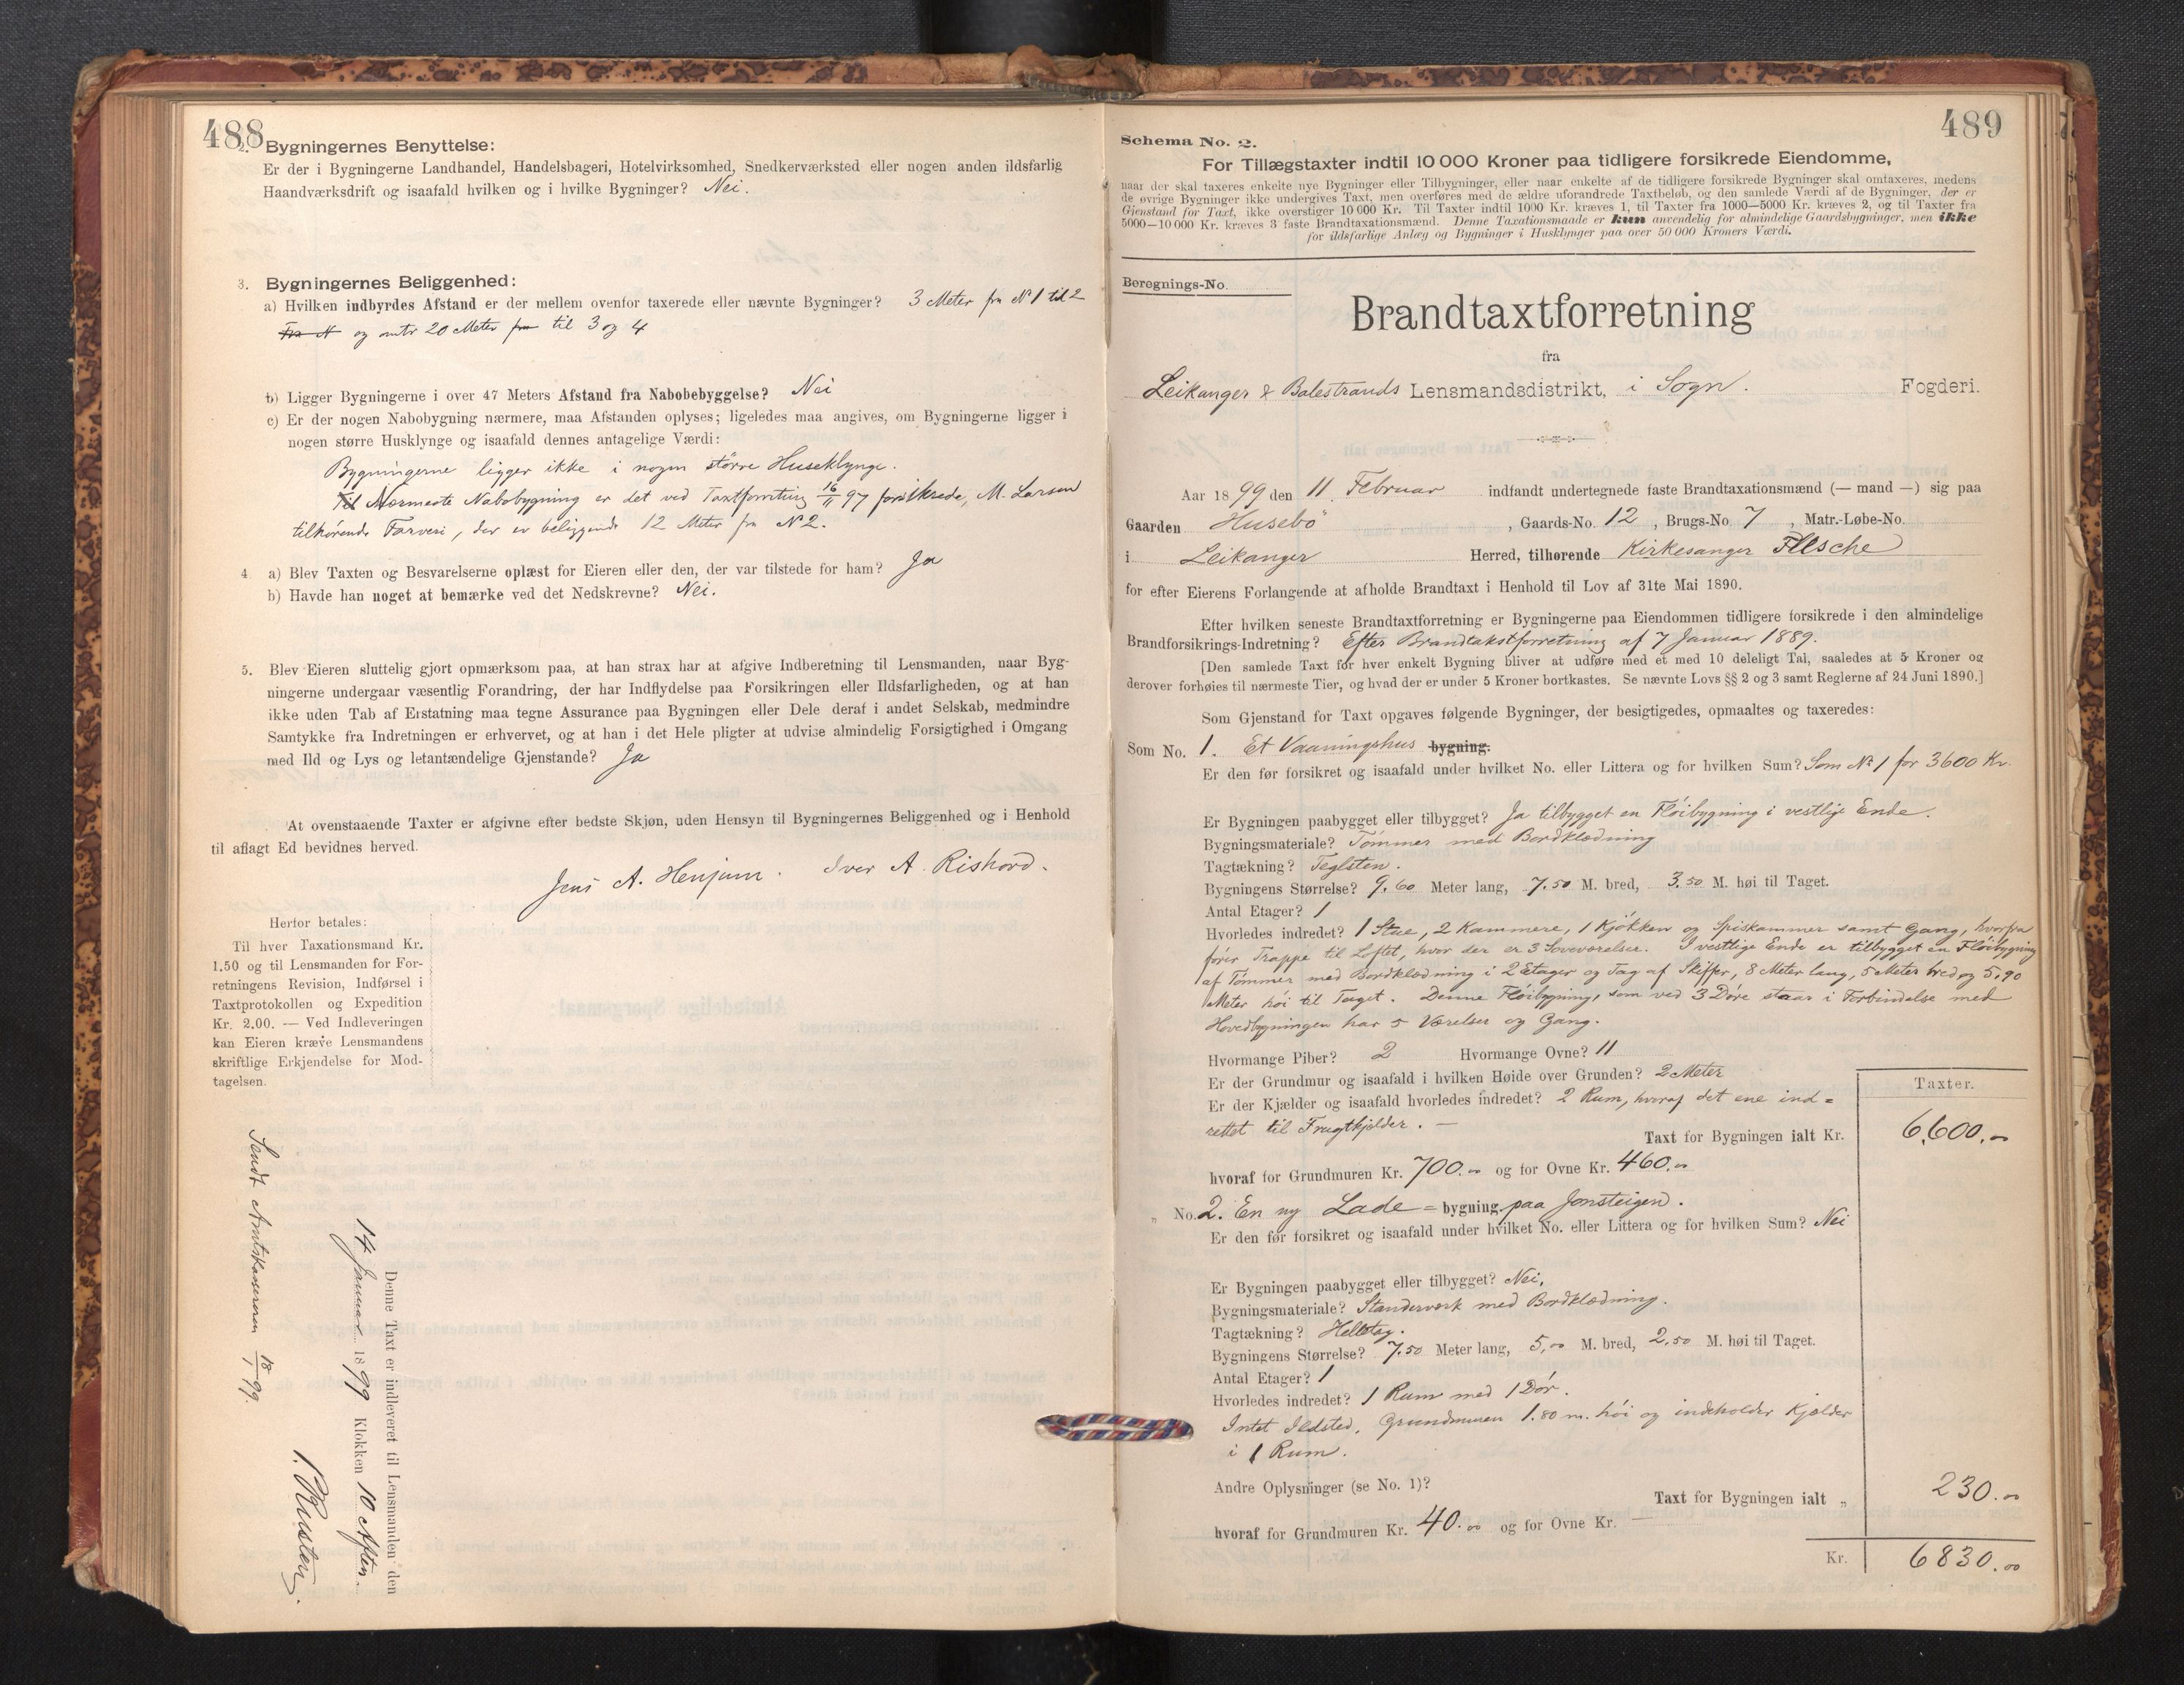 488
2. Bygningernes Benyttelse:
Er der i Bygningerne Landhandel, Handelsbageri, Hotelvirksomhed, Snedkerværksted eller nogen anden ildsfarlig
Haandværksdrift og isaafald hvilken og i hvilke Bygninger? Nei.
3. Bygningernes Beliggenhed:
a) Hvilken indbyrdes Afstand er der mellem ovenfor taxerede eller nævnte Bygninger? 3 Meter fra No 1 til 2
Fra N og omtr 20 Meter fra til 3 og 4
b) Ligger Bygningerne i over 47 Meters Afstand fra Nabobebyggelse? Nei
c) Er der nogen Nabobygning nærmere, maa Afstanden oplyses; ligeledes maa angives, om Bygningerne ligger i
nogen større Husklynge og isaafald dennes antagelige Værdi:
Bygningerne ligger ikke i nogen större Huseklynge.
Til Nærmeste Nabobygning er det ved Taxtforretning 16/11 97 forsikrede, M. Larsen
tilhörende Farveri, der er beliggende 12 Meter fra No 2.
4. a) Blev Taxten og Besvarelserne oplæst for Eieren eller den, der var tilstede for ham? Ja
b) Havde han noget at bemærke ved det Nedskrevne? Nei.
5. Blev Eieren sluttelig gjort opmærksom paa, at han strax har at afgive Indberetning til Lensmanden, naar Byg-
ningerne undergaar væsentlig Forandring, der har Indflydelse paa Forsikringen eller Ildsfarligheden, og at han
ikke uden Tab af Erstatning maa tegne Assurance paa Bygningen eller Dele deraf i andet Selskab, medmindre
Samtykke fra Indretningen er erhvervet, og at han i det Hele pligter at udvise almindelig Forsigtighed i Omgang
med Ild og Lys og letantændelige Gjenstande? Ja
At ovenstaaende Taxter er afgivne efter bedste Skjøn, uden Hensyn til Bygningernes Beliggenhed og i Henhold
til aflagt Ed bevidnes herved.
Jens A. Henjum. Iver A. Rishovd.
Herfor betales:
Til hver Taxationsmand Kr.
1.50 og til Lensmanden for For-
retningens Revision, Indførsel i
Taxtprotokollen og Expedition
Kr. 2.00. — Ved Indleveringen
kan Eieren kræve Lensmandens
skriftlige Erkjendelse for Mod-
tagelsen.
Denne Taxt er indleveret til Lensmanden den
14 Januar 1899 Klokken 10 Aften.
Sendt Amtskassereren 18/1 99.
489
Schema No. 2.
For Tillægstaxter indtil 10 000 Kroner paa tidligere forsikrede Eiendomme,
naar der skal taxeres enkelte nye Bygninger eller Tilbygninger, eller naar enkelte af de tidligere forsikrede Bygninger skal omtaxeres, medens
de øvrige Bygninger ikke undergives Taxt, men overføres med de ældre uforandrede Taxtbeløb, og den samlede Værdi af de Bygninger, der er
Gjenstand for Taxt, ikke overstiger 10 000 Kr. Til Taxter indtil 1000 Kr. kræves 1, til Taxter fra 1000—5000 Kr. kræves 2, og til Taxter fra
5000—10 000 Kr. kræves 3 faste Brandtaxationsmænd. Denne Taxationsmaade er kun anvendelig for almindelige Gaardsbygninger, men ikke
for ildsfarlige Anlæg og Bygninger i Husklynger paa over 50 000 Kroners Værdi.
Beregnings-No.
Brandtaxtforretning
fra
Leikanger & Balestrands Lensmandsdistrikt, i Sogn. Fogderi.
Aar 1899 den 11 Februar indfandt undertegnede faste Brandtaxationsmænd (— mand —) sig paa
Gaarden Husebö, Gaards-No. 12, Brugs-No. 7, Matr.-Løbe-No.
i Leikanger Herred, tilhørende Kirkesanger Flesche
for efter Eierens Forlangende at afholde Brandtaxt i Henhold til Lov af 31te Mai 1890.
Efter hvilken seneste Brandtaxtforretning er Bygningerne paa Eiendommen tidligere forsikrede i den almindelige
Brandforsikrings-Indretning? Efter Brandtakstforretning af 7 Januar 1889.
[Den samlede Taxt for hver enkelt Bygning bliver at udføre med et med 10 deleligt Tal, saaledes at 5 Kroner og
derover forhøies til nærmeste Tier, og hvad der er under 5 Kroner bortkastes. Se nævnte Lovs §§ 2 og 3 samt Reglerne af 24 Juni 1890.]
Som Gjenstand for Taxt opgaves følgende Bygninger, der besigtigedes, opmaaltes og taxeredes:
Som No. 1. Et Vaaningshus bygning.
Er den før forsikret og isaafald under hvilket No. eller Littera og for hvilken Sum? Som No 1 for 3600 Kr.
Er Bygningen paabygget eller tilbygget? Ja tilbygget en Flöibygning i vestlige Ende.
Bygningsmateriale? Tömmer med Bordklædning
Tagtækning? Teglsten.
Bygningens Størrelse? 9.60 Meter lang, 7.50 M. bred, 3.50 M. høi til Taget.
Antal Etager? 1
Hvorledes indredet? 1 Stue, 2 Kammere, 1 Kjökken og Spiskammer samt Gang, hvorfra
förer Trappe til Loftet, hvor der er 3 Soveværelser. I vestlige Ende er tilbygget en Flöibygning
af Tömmer med Bordklædning i 2 Etager og Tag af Skiffer, 8 Meter lang, 5 Meter bred og 5,90
Meter höi til Taget. Denne Flöibygning, som ved 3 Döre staar i Forbindelse med
Hovedbygningen har 5 Værelser og Gang.
Hvormange Piber? 2 Hvormange Ovne? 11
Er der Grundmur og isaafald i hvilken Høide over Grunden? 2 Meter
Er der Kjælder og isaafald hvorledes indredet? 2 Rum, hvoraf det ene ind=
rettet til Frugtkjelder. —
Taxter.
Taxt for Bygningen ialt Kr. 6,600.00
hvoraf for Grundmuren Kr. 700.00 og for Ovne Kr. 460.00
„ No. 2. En ny Lade = bygning paa Jonsteigen.
Er den før forsikret og isaafald under hvilket No. eller Littera og for hvilken Sum? Nei
Er Bygningen paabygget eller tilbygget? Nei,
Bygningsmateriale? Standerverk med Bordklædning.
Tagtækning? Helletag.
Bygningens Størrelse? 7.50 Meter lang, 5,00 M. bred, 2,50 M. høi til Taget.
Antal Etager? 1
Hvorledes indredet? 1 Rum med 1 Dör.
Intet Ildsted, Grundmuren 1.80 m. höi og indeholder Kjelder
i 1 Rum.
Andre Oplysninger (se No. 1)?
Taxt for Bygningen ialt „ 230.00
hvoraf for Grundmuren Kr. 40.00 og for Ovne Kr. —
Kr. 6830.00